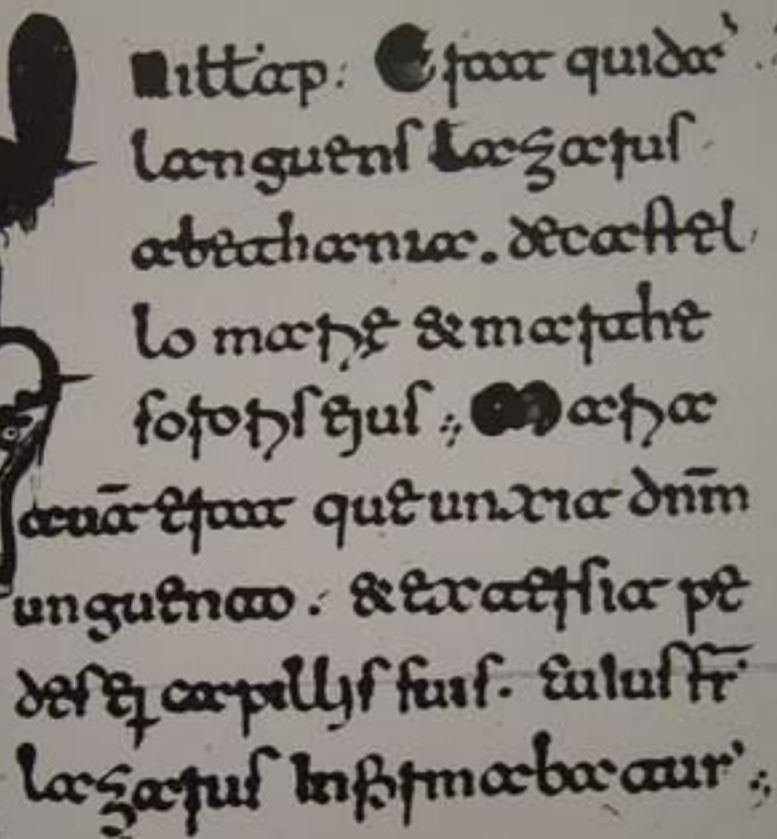 Erat quida'
languens Lazarus
abethania. decastel
lo marie & marthe
sororis eius ; Maria
autā erat que unxit dn̄m
unguento . & extersit pe
des ei capillis suis. cuius fr̄
lazarus Infirmabatur' ;